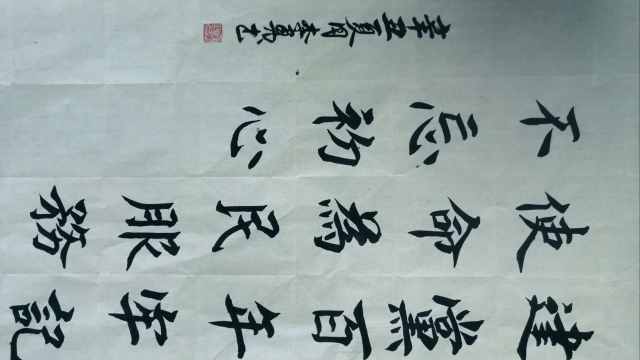 建黨百年牢記
使命為民服務
不忘初心
辛丑夏月李